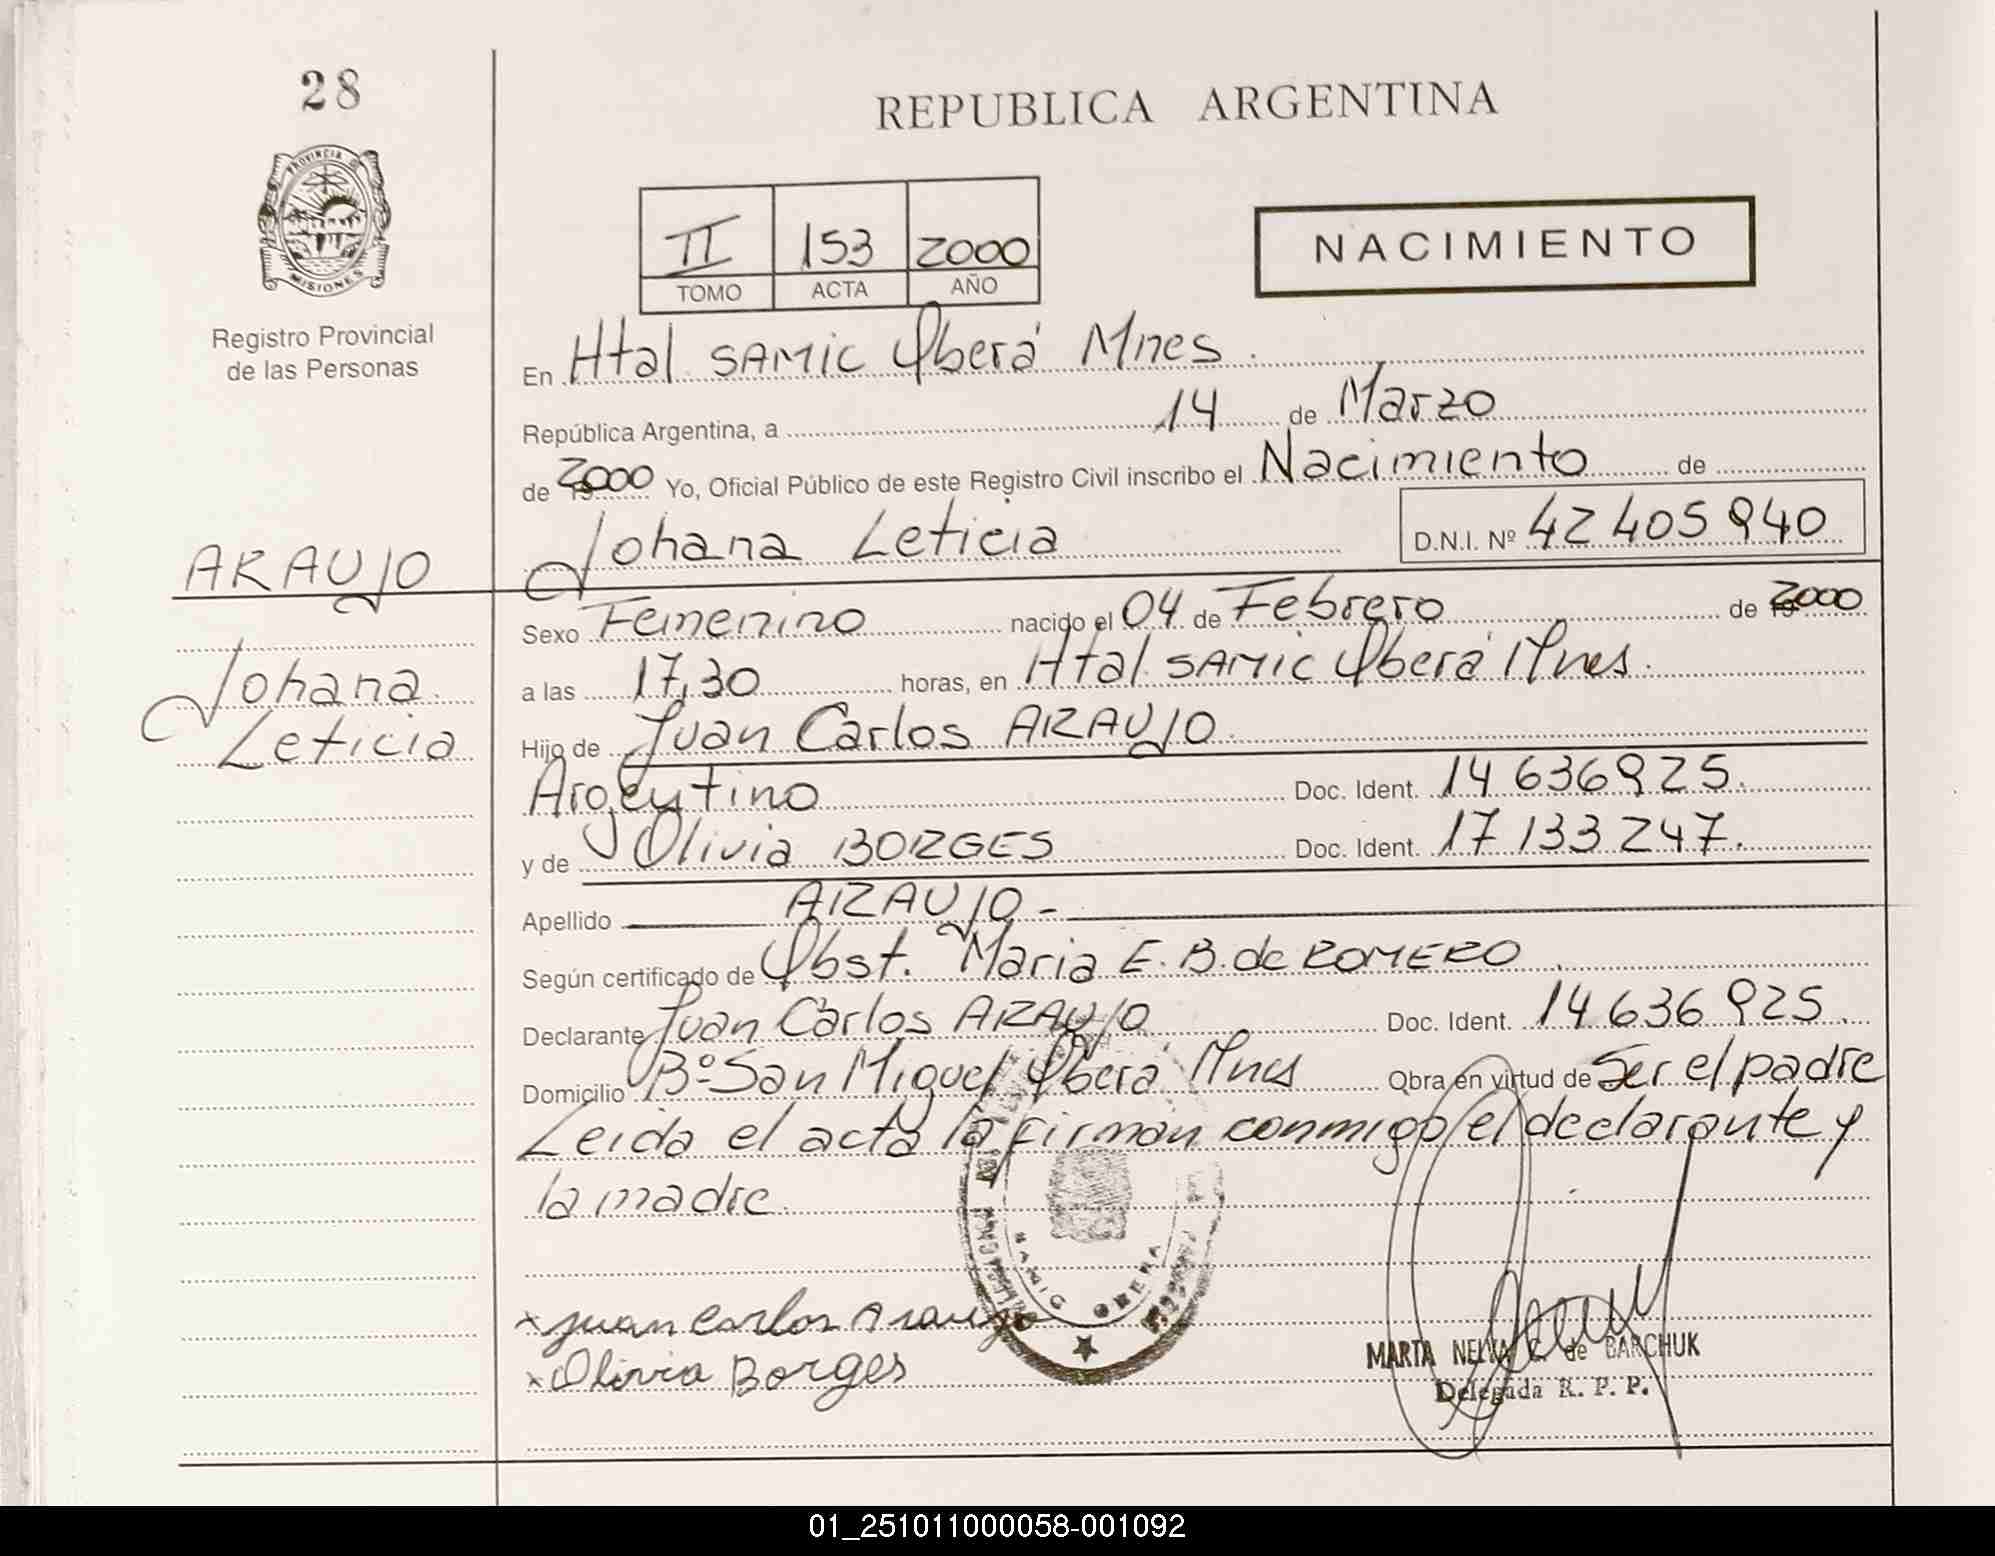 28
REPUBLICA ARGENTINA
PROVINCIA D
MISIONES
Registro Provincial
de las Personas
II 153 2000
TOMO ACTA AÑO
NACIMIENTO
En Htal SAMIC Oberá Mnes.
República Argentina, a 14 de Marzo
de 2000 Yo, Oficial Público de este Registro Civil inscribo el Nacimiento de
Johana Leticia D.N.I. Nº 42 405 940
ARAUJO
Johana
Leticia
Sexo Femenino nacido el 04 de Febrero de 2000
a las 17,30 horas, en Htal SAMIC Oberá Mnes.
Hijo de Juan Carlos ARAUJO
Argentino Doc. Ident. 14 636 925.
y de Olivia BORGES Doc. Ident. 17 133 247.
Apellido ARAUJO -
Según certificado de Obst. Maria E. B. de ROMERO
Declarante Juan Carlos ARAUJO Doc. Ident. 14 636 925.
Domicilio Bº San Miguel Oberá Mnes Obra en virtud de Ser el padre
Leida el acta la firman conmigo el declarante y
la madre.
SAMIC OBERA
x Juan Carlos Araujo
x Olivia Borges
MARTA NELVA C. de BARCHUK
Delegada R. P. P.
01_251011000058-001092